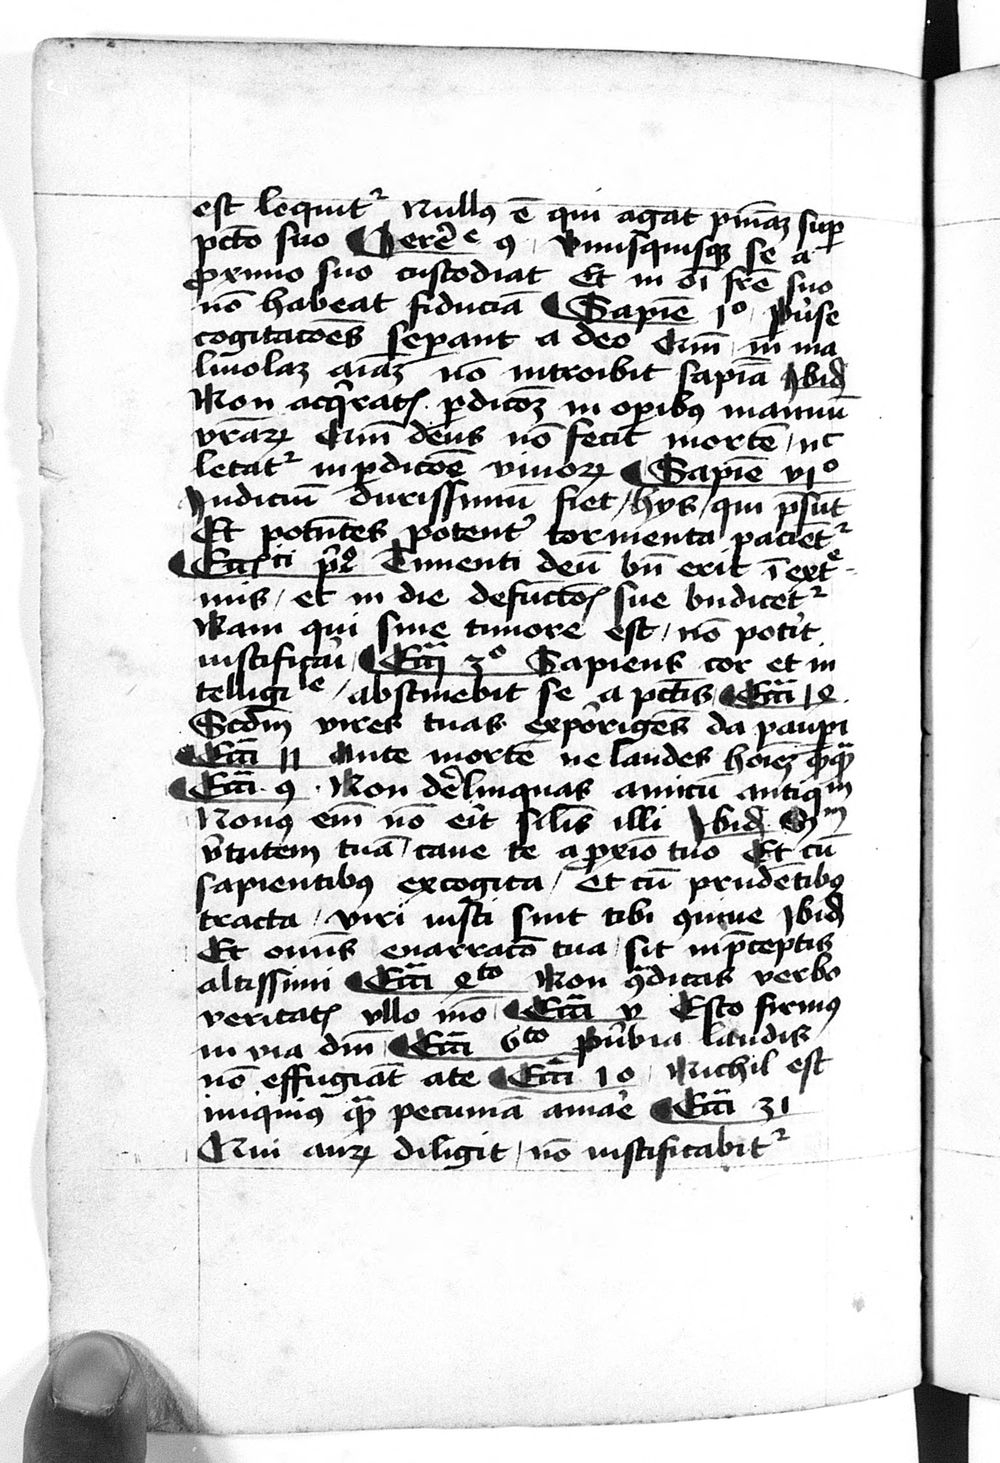 est loquit᷑ Nullꝯ ē qui agat pn̄iaꝫ suꝑ
pctō suo Jerē e 9 vnusquisqꝫ se a
ꝓximo suo custodiat Et in oī frē suo
nō habeat fiduciā Sapiē 1o Puꝰse
cogitacōes seꝑant a deo Qm̄ in ma
liuolaꝫ aīaꝫ nō introibit sapīa Jbid̄
Non acq̄ratꝭ ꝑdicōꝫ in oꝑibꝯ manuū
vrāꝝ Qm̄ deus nō fecit mortē / nc
letat᷑ in ꝑdicōē viuoꝝ Sapiē vio
Judiciū durissimū fiet / hijs / qui p̄sūt
Et potn̄tes potent᷑ tormenta paciēt᷑
Ecc̄sti pͦ Timenti deū bn̄ erit ī extre
mis / et in die defūctōꝭ sue bn̄dicet᷑
Nam qui sine timore est / nō potit
iustificaꝛi / Ecc̄i 3o Sapiens cor et in
telligile / abstinebit se a pctīs Ecc̄i 14
Scd̄m vires tuas exporigēs da pauꝑi
Ecc̄i 11 Ante mortē ne laudes hoīeꝫ q̄q̄
Ecc̄i 9 Non derelinquas amicū antiqm
Nouꝯ em̄ nō eit silis illi Jbid̄ Sm
v̄tutem tuā / caue te a ꝓxīo tuo Et cū
sapientibꝯ excogita / Et cū prudētibꝯ
tracta / viri iusti sint tibi ꝯuiue Jbid̄
Et omīs enarracō tua / sit in p̄ceptis
altissimi Ecc̄i 4to Non ꝯ̄dicas verbo
veritatꝭ vllo mō Ecc̄i v Esto firmꝯ
in via dn̄i Ecc̄i 6to Pv̄bia laudis
nō effugiāt a te Ecc̄i 10 Nichil est
iniquiꝯ q̄ pecuniā amaꝛe Ecc̄i 31
Qui auꝝ diligit / nō iustificabit᷑